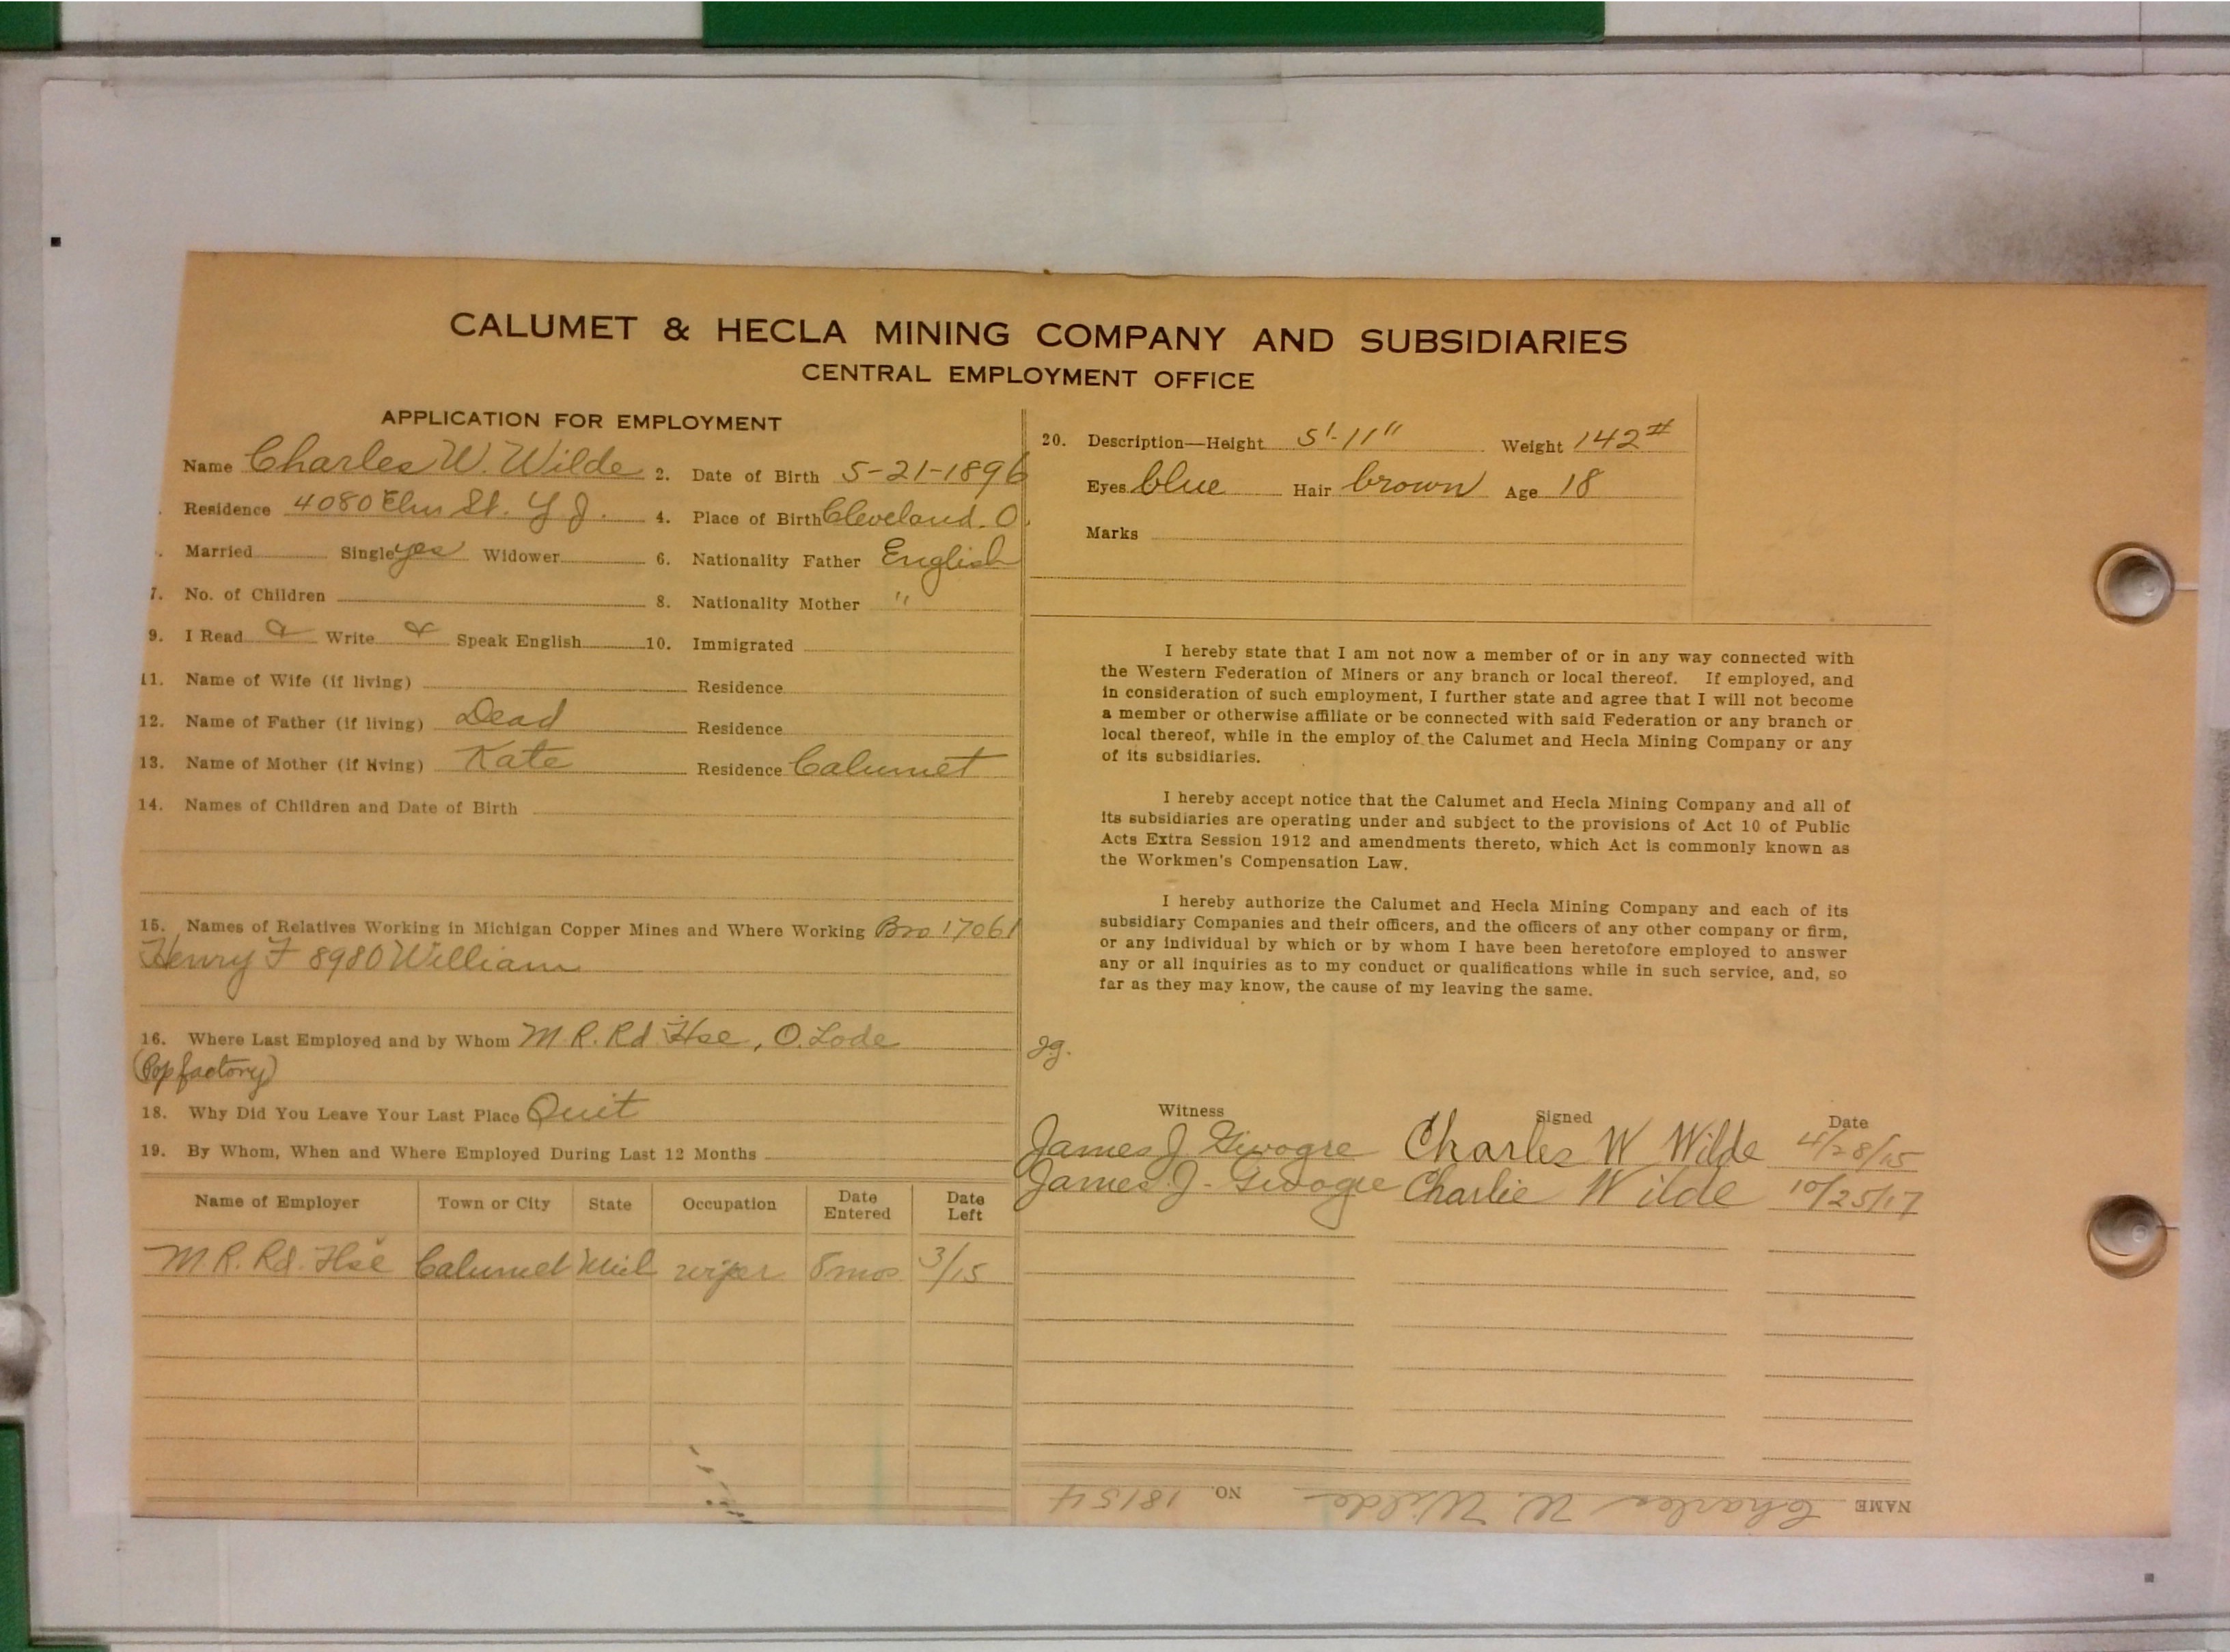 CALUMET & HECLA MINING COMPANY AND SUBSIDIARIES
CENTRAL EMPLOYMENT OFFICE
APPLICATION FOR EMPLOYMENT
Name Charles W. Wilde 2. Date of Birth 5-21-1896
Residence 4080 Elm St. Y J. 4. Place of Birth Cleveland. O.
Married Single yes Widower 6. Nationality Father English
7. No. of Children 8. Nationality Mother "
9. I Read Write Speak English 10. Immigrated
11. Name of Wife (if living) Residence
12. Name of Father (if living) Dead Residence
13. Name of Mother (if living) Kate Residence Calumet
14. Names of Children and Date of Birth
15. Names of Relatives Working in Michigan Copper Mines and Where Working Bro 17061
Henry F 8980 William
16. Where Last Employed and by Whom M. R. Rd Hse, O. Lode
(Pop factory)
18. Why Did You Leave Your Last Place Quit
19. By Whom, When and Where Employed During Last 12 Months
Name of Employer Town or City State Occupation Date Entered Date Left
M R. Rd. Hse Calumet Mich wiper 8 mos 3/15
20. Description—Height 5'-11" Weight 142#
Eyes blue Hair brown Age 18
Marks
I hereby state that I am not now a member of or in any way connected with
the Western Federation of Miners or any branch or local thereof. If employed, and
in consideration of such employment, I further state and agree that I will not become
a member or otherwise affiliate or be connected with said Federation or any branch or
local thereof, while in the employ of the Calumet and Hecla Mining Company or any
of its subsidiaries.
I hereby accept notice that the Calumet and Hecla Mining Company and all of
its subsidiaries are operating under and subject to the provisions of Act 10 of Public
Acts Extra Session 1912 and amendments thereto, which Act is commonly known as
the Workmen's Compensation Law.
I hereby authorize the Calumet and Hecla Mining Company and each of its
subsidiary Companies and their officers, and the officers of any other company or firm,
or any individual by which or by whom I have been heretofore employed to answer
any or all inquiries as to my conduct or qualifications while in such service, and, so
far as they may know, the cause of my leaving the same.
Witness Signed Date
James J Givogre Charles W Wilde 4/28/15
James J. Givogre Charlie Wilde 10/25/17
NAME Charles W. Wilde NO. 18154